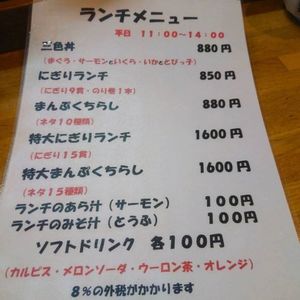 ランチメニュー
平日 11:00~14:00
三色丼 880円
(まぐろ・サーモンといくら・いかととびっ子)
にぎりランチ 850円
(にぎり9貫・のり巻1本)
まんぷくちらし 880円
(ネタ10種類)
特大にぎりランチ 1600円
(にぎり15貫)
特大まんぷくちらし 1600円
(ネタ15種類)
ランチのあら汁(サーモン) 100円
ランチのみそ汁(とうふ) 100円
ソフトドリンク 各100円
(カルピス・メロンソーダ・ウーロン茶・オレンジ)
8%の外税がかかります